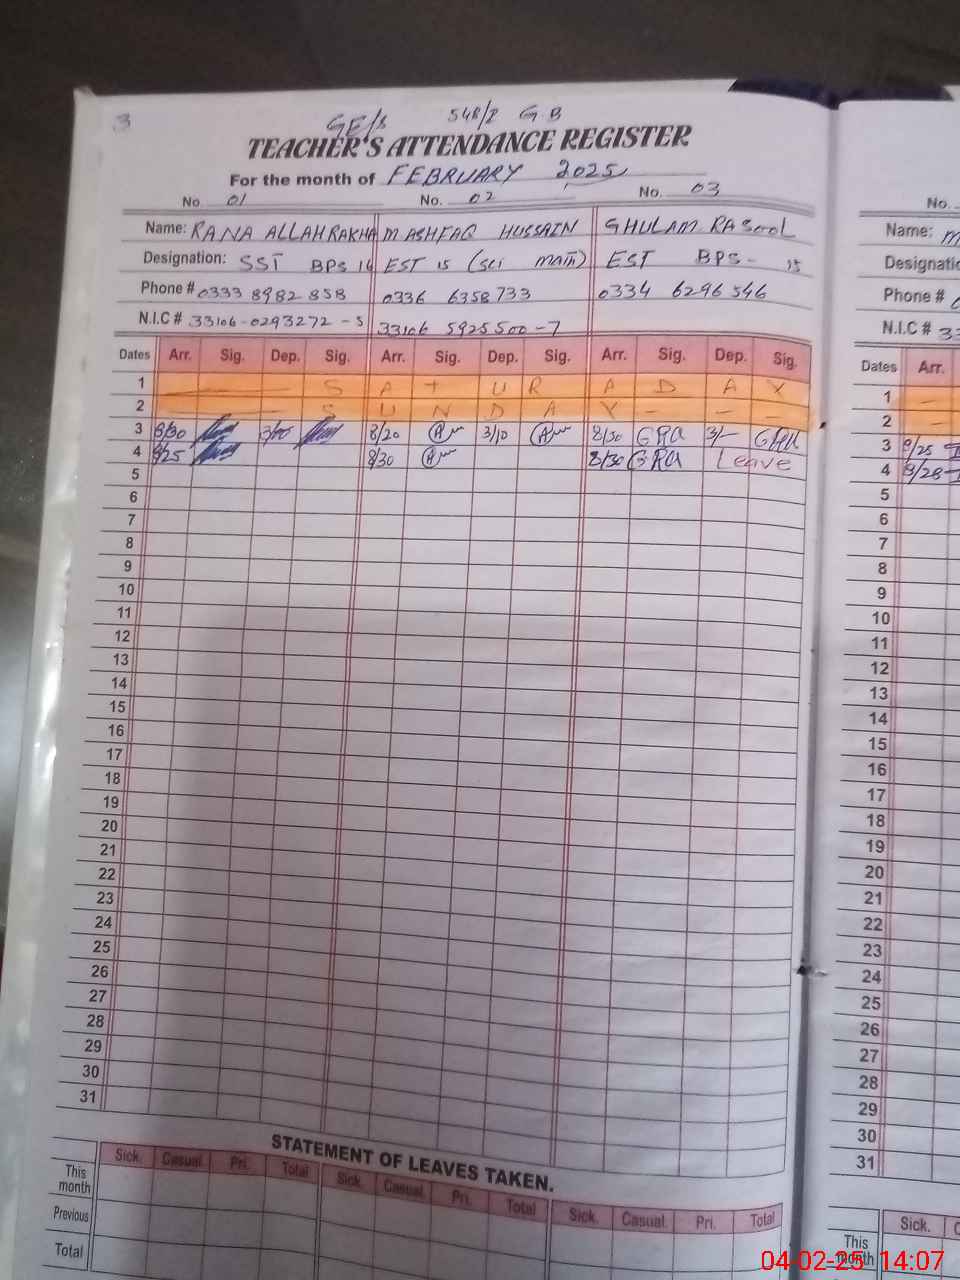 3
GE/s 548/2 G B
TEACHER'S ATTENDANCE REGISTER
For the month of FEBRUARY 2025
No 01 No. 02 No. 03
Name: RANA ALLAHRAKHA M ASHFAQ HUSSAIN GHULAM RASOOL
Designation: SST BPS 16 EST 15 (Sci math) EST BPS- 15
Phone # 0333 8982 858 0336 6358733 0334 6296546
N.I.C # 33106-0293272-5 33106 5925500-7
Dates Arr. Sig. Dep. Sig. Arr. Sig. Dep. Sig. Arr. Sig. Dep. Sig.
1 S A T U R A D A Y
2 S U N D A Y
3 8/30 8/20 3/10 8/30 GRA 3/- GRA
4 8/25 8/30 8/30 GRA Leave
5
6
7
8
9
10
11
12
13
14
15
16
17
18
19
20
21
22
23
24
25
26
27
28
29
30
31
STATEMENT OF LEAVES TAKEN.
Sick. Casual. Pri. Total Sick. Casual. Pri. Total Sick. Casual. Pri. Total
This month
Previous
Total
No.
Name: M
Designatio
Phone #
N.I.C # 33
Dates Arr.
1
2
3 8/25
4 8/28
5
6
7
8
9
10
11
12
13
14
15
16
17
18
19
20
21
22
23
24
25
26
27
28
29
30
31
Sick. C
This month
04-02-25 14:07